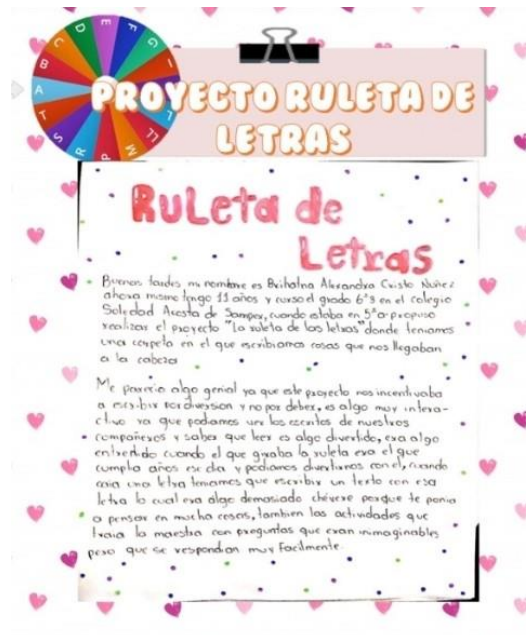 PROYECTO RULETA DE
LETRAS
Ruleta de
Letras
Buenas tardes mi nombre es Alexandra Cristo Nuñez
ahora mismo tengo 11 años y curso el grado 6°3 en el colegio
Soledad Acosta de Samper, cuando estaba en 5° propuso
realizar el proyecto "La ruleta de las letras" donde teniamos
una carpeta en el que escribiamos cosas que nos llegaban
a la cabeza
Me parecio algo genial ya que este proyecto nos incentivaba
a escribir por diversion y no por deber, es algo muy intera-
ctivo ya que podiamos ver los escritos de nuestros
compañeros y saber que leer es algo divertido, era algo
entretido cuando el que giraba la ruleta era el que
cumplia años ese dia y podiamos divertirnos con el, cuando
caia una letra teniamos que escribir un texto con esa
letra lo cual era algo demasiado chévere porque te ponia
a pensar en mucha cosas, tambien las actividades que
traia la maestra con preguntas que eran inimaginables
pero que se respondian muy Facilmente.